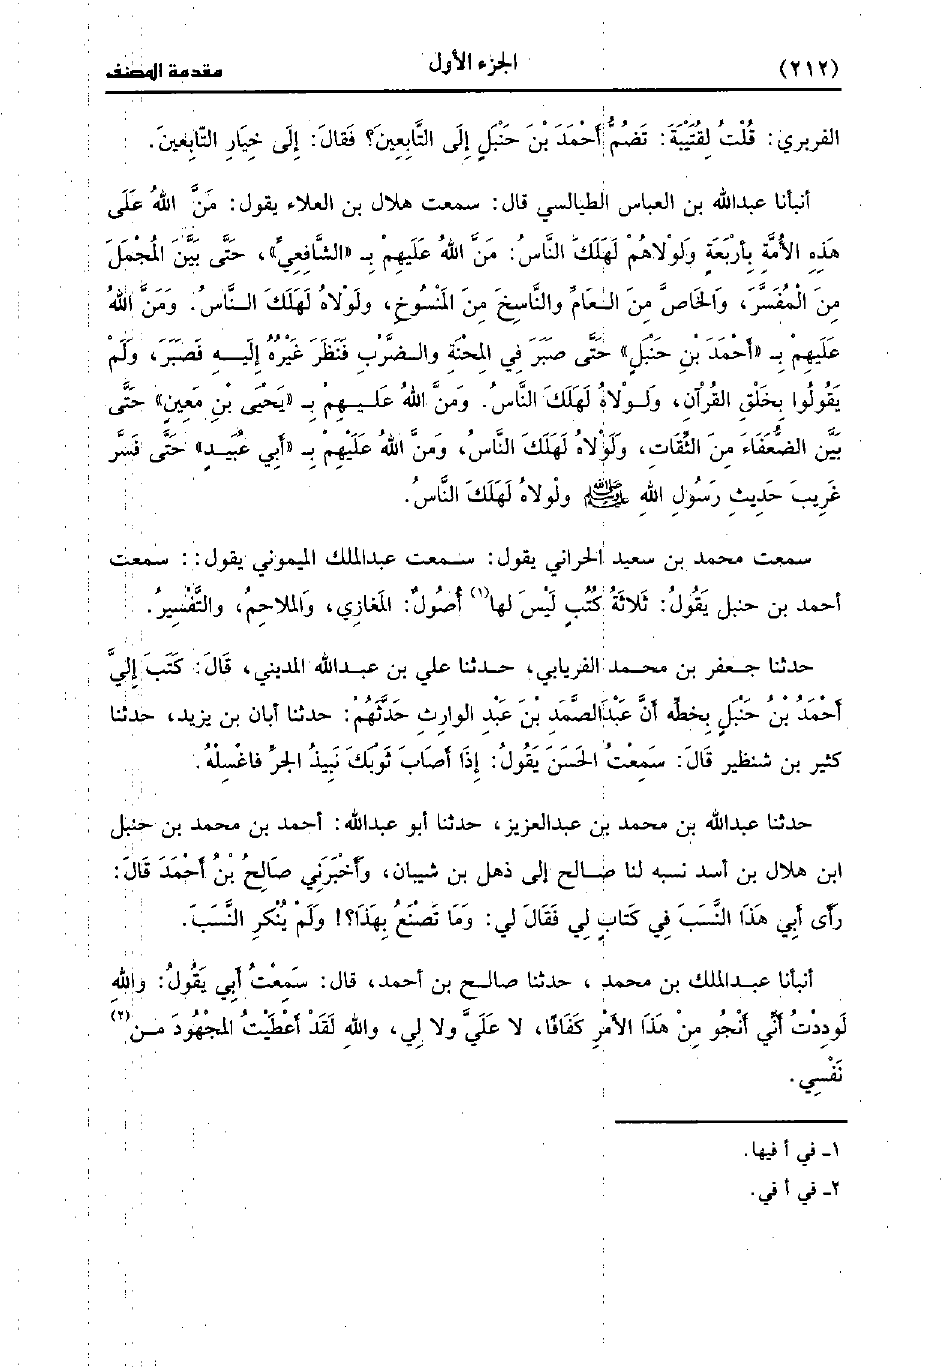 (٢١٢) الجزء الأول مقدمة المصنف
الفربري: قُلْتُ لِقُتَيْبَةَ: تَضُمُّ أَحْمَدَ بْنَ حَنْبَلٍ إِلَى التَّابِعِينَ؟ فَقَالَ: إِلَى خِيَارِ التَّابِعِينَ.
أنبأنا عبدالله بن العباس الطيالسي قال: سمعت هلال بن العلاء يقول: مَنَّ اللهُ عَلَى
هَذِهِ الأُمَّةِ بِأَرْبَعَةٍ وَلَولَاهُمْ لَهَلَكَ النَّاسُ: مَنَّ اللهُ عَلَيهِمْ بِـ «الشَّافِعِيِّ»، حَتَّى بَيَّنَ الْمُجْمَلَ
مِنَ الْمُفَسَّرِ، وَالْخَاصَّ مِنَ الْعَامِّ والنَّاسِخَ مِنَ الْمَنْسُوخِ، ولَولَاهُ لَهَلَكَ النَّاسُ. وَمَنَّ اللهُ
عَلَيهِمْ بِـ «أَحْمَدَ بْنِ حَنْبَلٍ» حَتَّى صَبَرَ فِي الْمِحْنَةِ والضَّرْبِ فَنَظَرَ غَيْرُهُ إِلَيهِ فَصَبَرَ، وَلَمْ
يَقُولُوا بِخَلْقِ القُرْآنِ، وَلَوْلَاهُ لَهَلَكَ النَّاسُ. وَمَنَّ اللهُ عَلَيهِمْ بِـ «يَحْيَى بْنِ مَعِينٍ» حَتَّى
بَيَّنَ الضُّعَفَاءَ مِنَ الثِّقَاتِ، وَلَوْلَاهُ لَهَلَكَ النَّاسُ، وَمَنَّ اللهُ عَلَيْهِمْ بِـ «أَبِي عُبَيدٍ» حَتَّى فَسَّرَ
غَرِيبَ حَدِيثِ رَسُولِ اللهِ ﷺ ولَوْلَاهُ لَهَلَكَ النَّاسُ.
سمعت محمد بن سعيد الحراني يقول: سمعت عبدالملك الميموني يقول:: سمعت
أحمد بن حنبل يَقُولُ: ثَلَاثَةُ كُتُبٍ لَيْسَ لَهَا(١) أُصُولٌ: الْمَغَازِي، وَالْمَلَاحِمُ، وَالتَّفْسِيرُ.
حدثنا جعفر بن محمد الفريابي، حدثنا علي بن عبدالله المديني، قَالَ: كَتَبَ إِلَيَّ
أَحْمَدُ بْنُ حَنْبَلٍ بِخَطِّهِ أَنَّ عَبْدَالصَّمَدِ بْنَ عَبْدِ الوارِثِ حَدَّثَهُمْ: حدثنا أبان بن يزيد، حدثنا
كثير بن شنظير قَالَ: سَمِعْتُ الْحَسَنَ يَقُولُ: إِذَا أَصَابَ ثَوبَكَ نَبِيذُ الْجَرِّ فَاغْسِلْهُ.
حدثنا عبدالله بن محمد بن عبدالعزيز، حدثنا أبو عبدالله: أحمد بن محمد بن حنبل
ابن هلال بن أسد نسبه لنا صالح إلى ذهل بن شيبان، وَأَخْبَرَنِي صَالِحُ بْنُ أَحْمَدَ قَالَ:
رَأَى أَبِي هَذَا النَّسَبَ فِي كِتَابٍ لِي فَقَالَ لِي: وَمَا تَصْنَعُ بِهَذَا؟! وَلَمْ يُنْكِرِ النَّسَبَ.
أنبأنا عبدالملك بن محمد ، حدثنا صالح بن أحمد، قال: سَمِعْتُ أَبِي يَقُولُ: واللهِ
لَوَدِدْتُ أَنِّي أَنْجُو مِنْ هَذَا الأَمْرِ كَفَافًا، لا عَلَيَّ ولا لِي، واللهِ لَقَدْ أَعْطَيْتُ الْمَجْهُودَ مِنْ(٢)
نَفْسِي.
١ـ في أ فيها.
٢ـ في أ في.